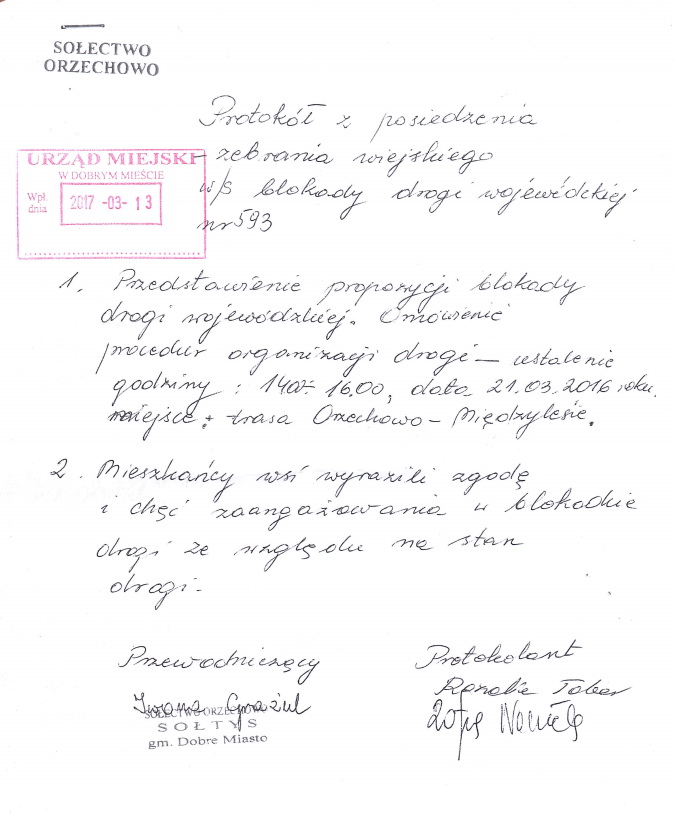 SOŁECTWO
ORZECHOWO
Protokół z posiedzenia
URZĄD MIEJSKI
W DOBRYM MIEŚCIE
Wpł.
dnia
2017 -03- 13
zebrania wiejskiego
w/s blokady drogi wojewódzkiej
nr 593
1. Przedstawienie propozycji blokady
drogi wojewódzkiej. Omówienie
procedur organizacji drogi – ustalenie
godziny : 16.00, data 21.03.2016 roku,
miejsce : trasa Orzechowo – Międzylesie.
2. Mieszkańcy wsi wyrazili zgodę
i chęć zaangażowania w blokadzie
drogi ze względu na stan
drogi.
Przewodniczący
Protokolant
Iwona
SOŁECTWO ORZECHOWO
SOŁTYS
gm. Dobre Miasto